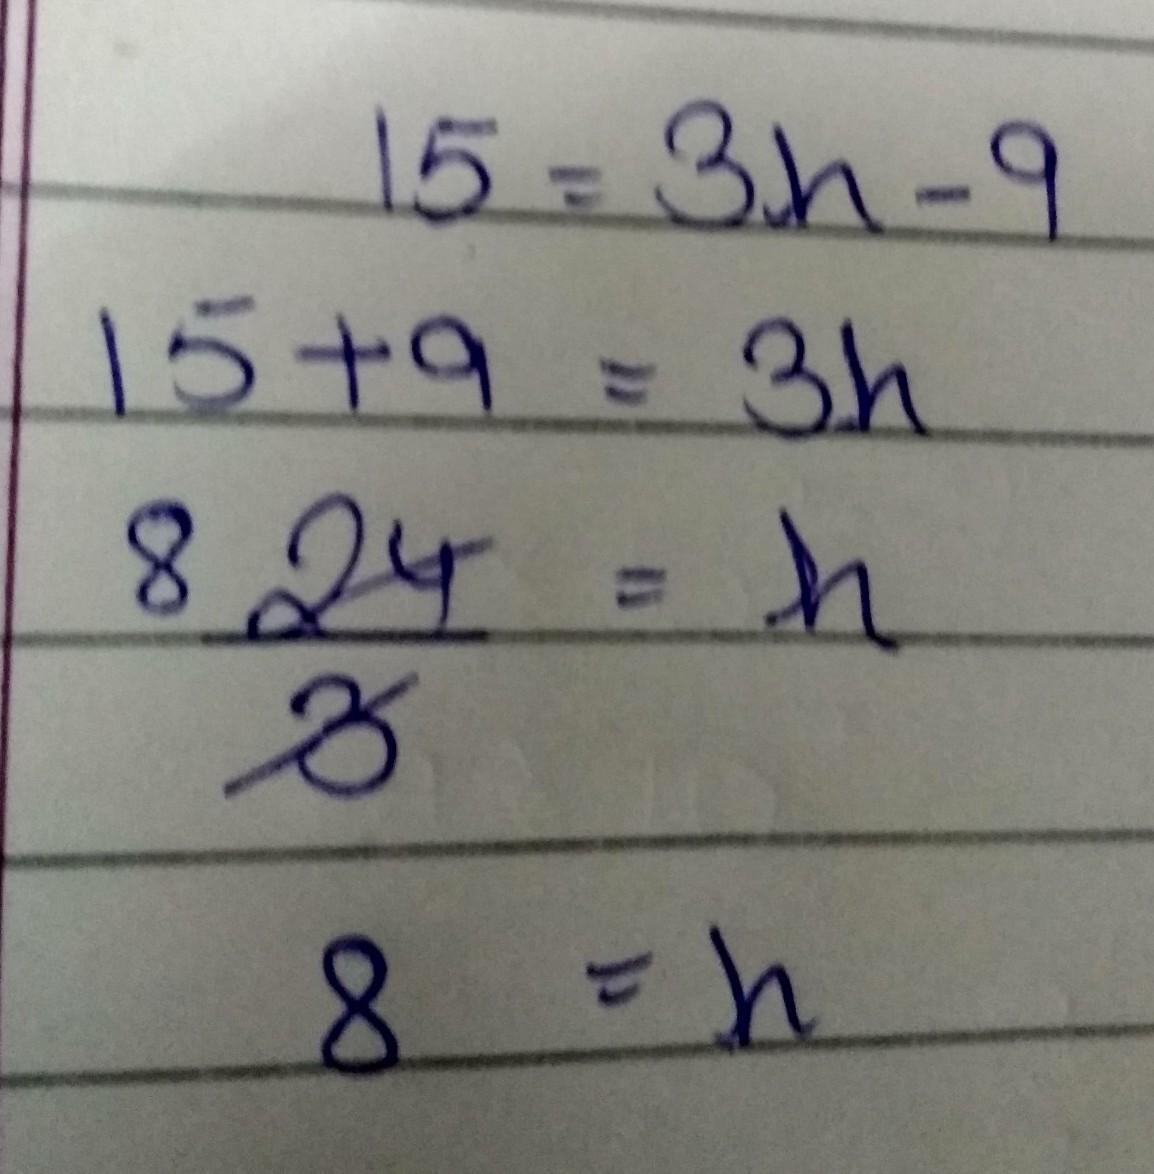 15 = 3h - 9
15 + 9 = 3h
8 24 = h
3
8 = h